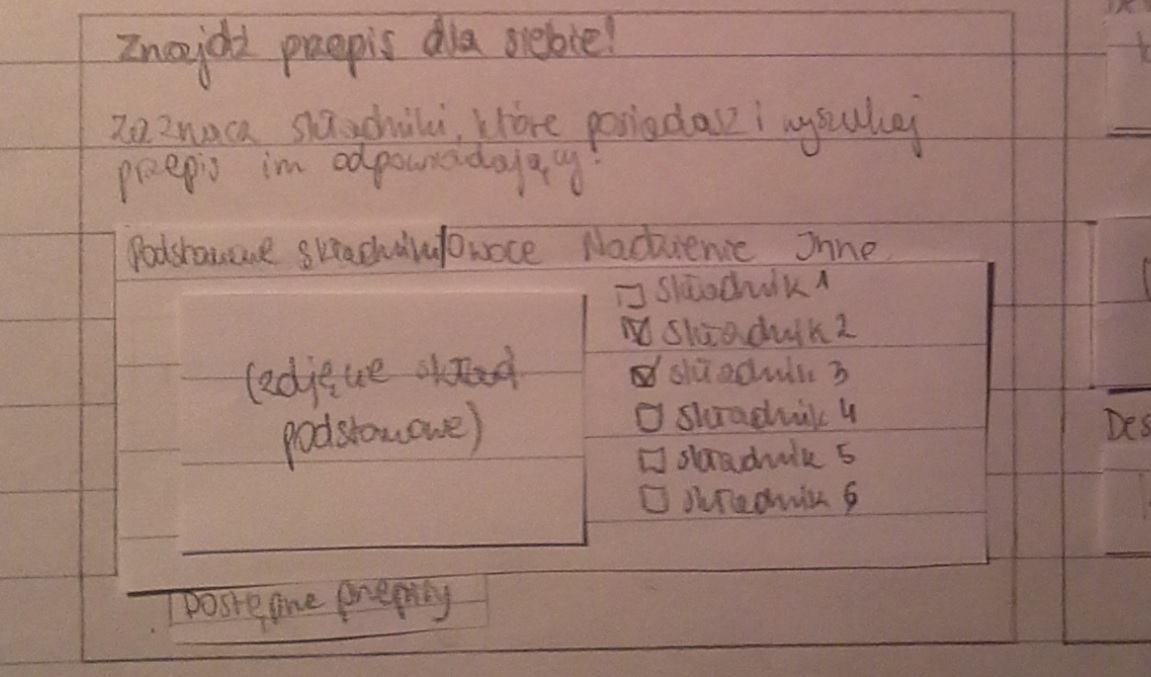 Znajdź przepis dla siebie!
Zaznacz składniki, które posiadasz i wyszukaj
przepis im odpowiadający!
Podstawowe składniki/Owoce Nadzienie Inne
(zdjęcie skład
podstawowe)
składnik 1
składnik 2
składnik 3
składnik 4
składnik 5
składnik 6
Dostępne przepisy
Des